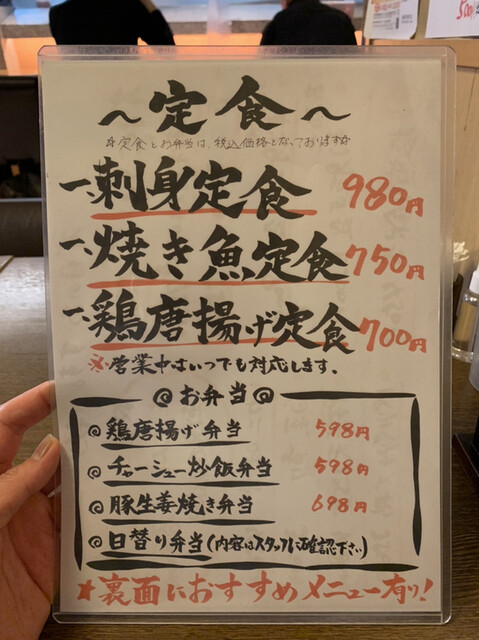 ～定食～
☆定食とお弁当は、税込価格となっております☆
一、刺身定食 980円
一、焼き魚定食 750円
一、鶏唐揚げ定食 700円
※営業中はいつでも対応します。
◎お弁当◎
◎鶏唐揚げ弁当 598円
◎チャーシュー炒飯弁当 598円
◎豚生姜焼き弁当 698円
◎日替り弁当(内容はスタッフに確認下さい)
★裏面におすすめメニュー有り!